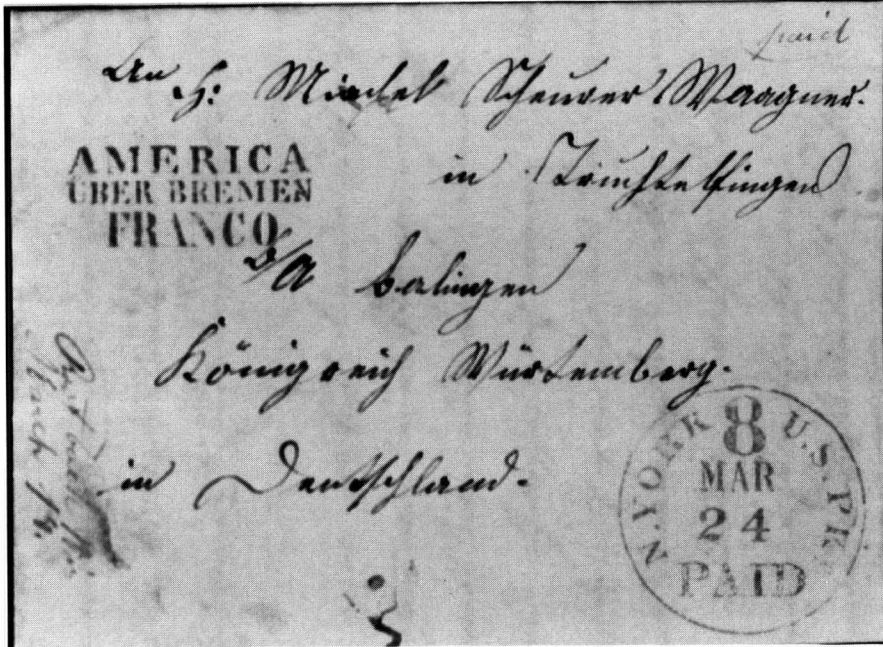 paid
An H: Michel Scheurer Waagner.
AMERICA
ÜBER BREMEN
FRANCO
in Truchtelfingen
O/A Balingen
Königreich Würtemberg.
in Deutschland.
N.YORK U.S.PKT.
8
MAR
24
PAID
March 14.